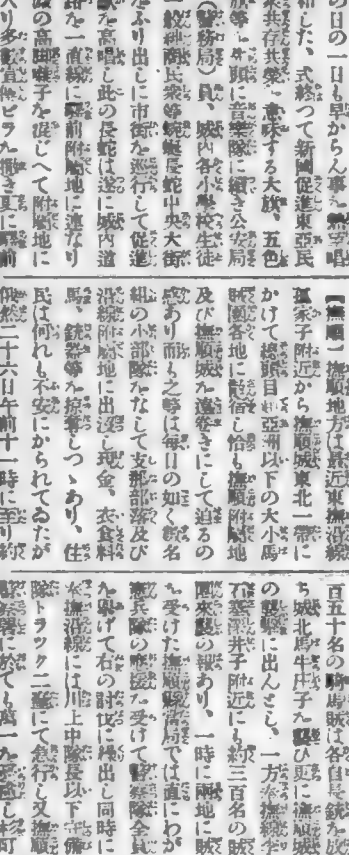 の日の一日も早からん事を
和した、式終つて新國促進東亞民
衆共存共榮を意味する大旗、五色
旗等を先頭に音樂隊に續き公安局
(警務局)員、城內各小學校生徒
一般商民衆等蜿蜒長蛇中央大街
をふり出しに市街を巡行して促進
を高唱し此の長蛇は遂に城內道
路を一直線に驛前附屬地に連なり
の高脚唯子を混じへて附屬地に
入り多數宣傳ビラを撒き更に驛前
【撫順】撫順地方は最近東撫沿線
孤家子附近から撫順城東北一帶に
かけて總頭目亞洲以下の大小馬
賊團各地に散宿し恰も撫順附屬地
及び撫順城を遠卷きにして迫るの
感あり而も之等は每日の如く數名
組の小部隊をなして支那部落及び
沿線附屬地に出沒し現金、衣食料
馬、銃器等を掠奪しつゝあり、住
民は何れも不安にかられてゐたが
俄然二十六日午前十一時に至り約
百五十名の騎馬賊は各自長銃を放
ち城北馬牛庄子を襲ひ更に撫順城
の襲擊に出んとし、一方奉撫線李
石寨深井子附近にも約三百名の賊
團來襲の報あり、一時に兩地に賊
を受けた撫順縣當局では直にわが
憲兵隊の應援を受けて警察隊全員
を擧げて右の討伐に繰出し同時に
奉撫沿線には川上中隊長以下守備
隊トラツク二臺にて急行し又撫順
警察署に於ても萬一を